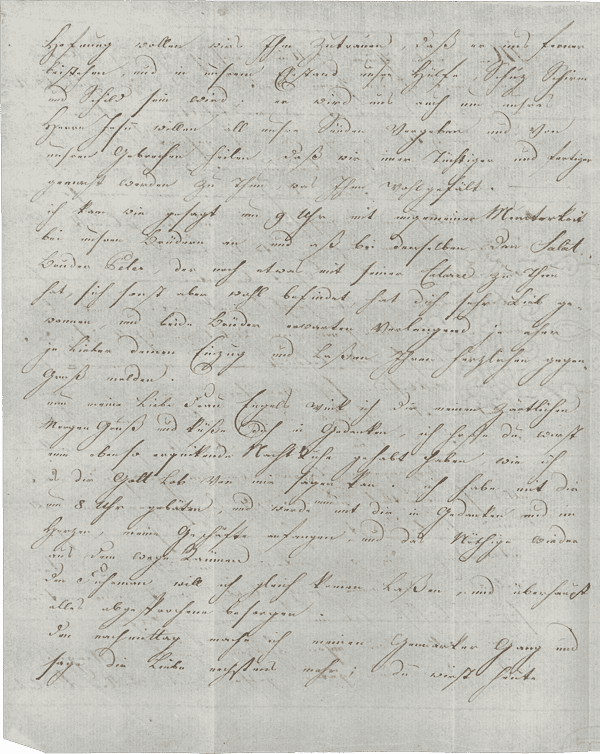 Hofnung wollen wir Ihm zutrauen, daß er uns ferner
beistehen, und in unserm Ehstand unsre Hülfe Schutz Schirm
und Schild sein wird; er wird uns auch um unsres
Herrn Jesu willen all unsre Sünden vergeben und von
unsern Gebrechen heilen, daß wir imer Tüchtiger und fertiger
gemacht werden zu Thun, was Ihm wohlgefält.
ich kam wie gesagt um 9 Uhr mit ungemeiner Munterkeit
bei unsern Brüdern an und aß bei denselben den Salat.
Bruder Peter, der noch etwas mit seiner zu Thun
hat, sich sonst aber wohl befindet, hat dich sehr Lieb ge-
wonnen, und beide Brüder erwarten Verlangend, je eher
je Lieber deinen Einzug und Laßen Ihren herzlichen gegen-
Gruß melden.
nun meine Liebe Frau Engels wink ich Dir meinen zärtlichen
Morgen Gruß und küße Dich in Gedanken, ich hoffe du wirst
eine ebenso erquickende Nacht Ruhe gehabt haben wie ich
die Gott Lob von mir sagen kan. ich habe mit dir
um 8 Uhr gebäten, und werde nun mit dir in Gedanken und im
Herzen, meine Geschäfte anfangen und das Nöthige wieder
aus dem wege Räumen.
Den Fuhrman will ich gleich komen Laßen, und überhaupt
alles abgesprochene besorgen.
Den nachmittag mache ich meinen Gemarker Gang und
sage dir Liebe nachstens mehr; du wirst heute